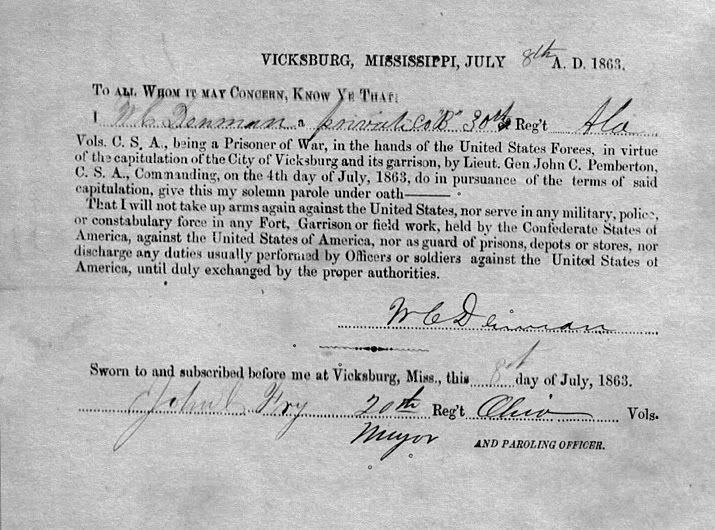 VICKSBURG, MISSISSIPPI, JULY 8th A. D. 1863.
TO ALL WHOM IT MAY CONCERN, KNOW YE THAT:
I W C Denman a private Co "B" 30th Reg't Ala
Vols. C. S. A., being a Prisoner of War, in the hands of the United States Forces, in virtue
of the capitulation of the City of Vicksburg and its garrison, by Lieut. Gen John C. Pemberton,
C. S. A., Commanding, on the 4th day of July, 1863, do in pursuance of the terms of said
capitulation, give this my solemn parole under oath——
That I will not take up arms again against the United States, nor serve in any military, police,
or constabulary force in any Fort, Garrison or field work, held by the Confederate States of
America, against the United States of America, nor as guard of prisons, depots or stores, nor
discharge any duties usually performed by Officers or soldiers against the United States of
America, until duly exchanged by the proper authorities.
W C Denman
Sworn to and subscribed before me at Vicksburg, Miss., this 8th day of July, 1863.
John C Fry 20th Reg't Ohio Vols.
Mayor AND PAROLING OFFICER.